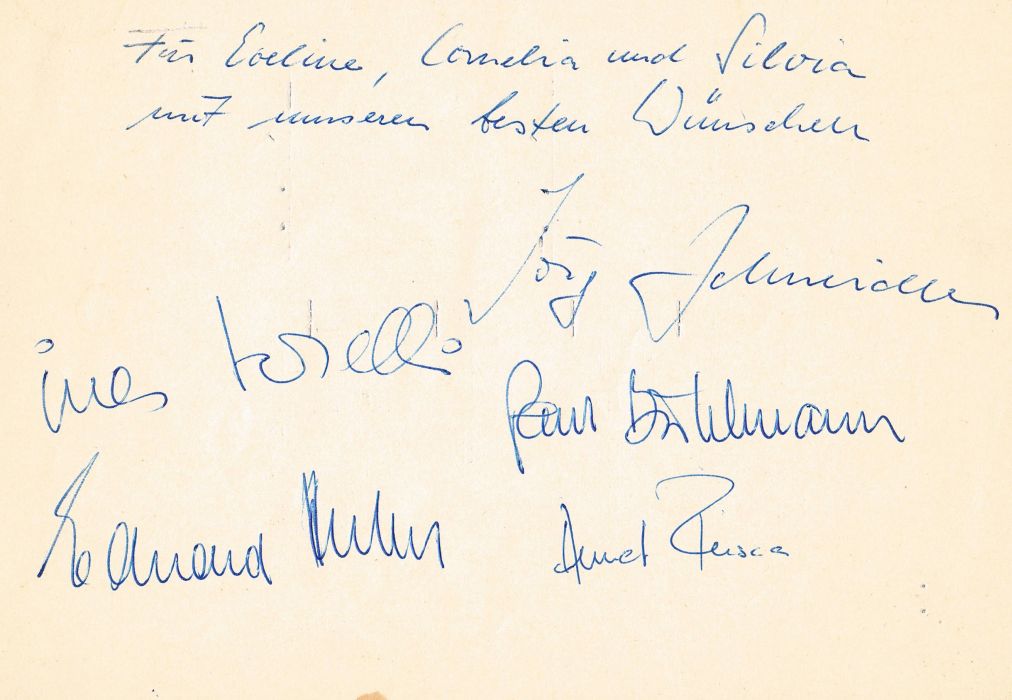 Für Eveline, Cornelia und Silvia
mit unseren besten Wünschen
Jörg Schneider
Ines Torelli
Paul Bühlmann
Eduard Huber